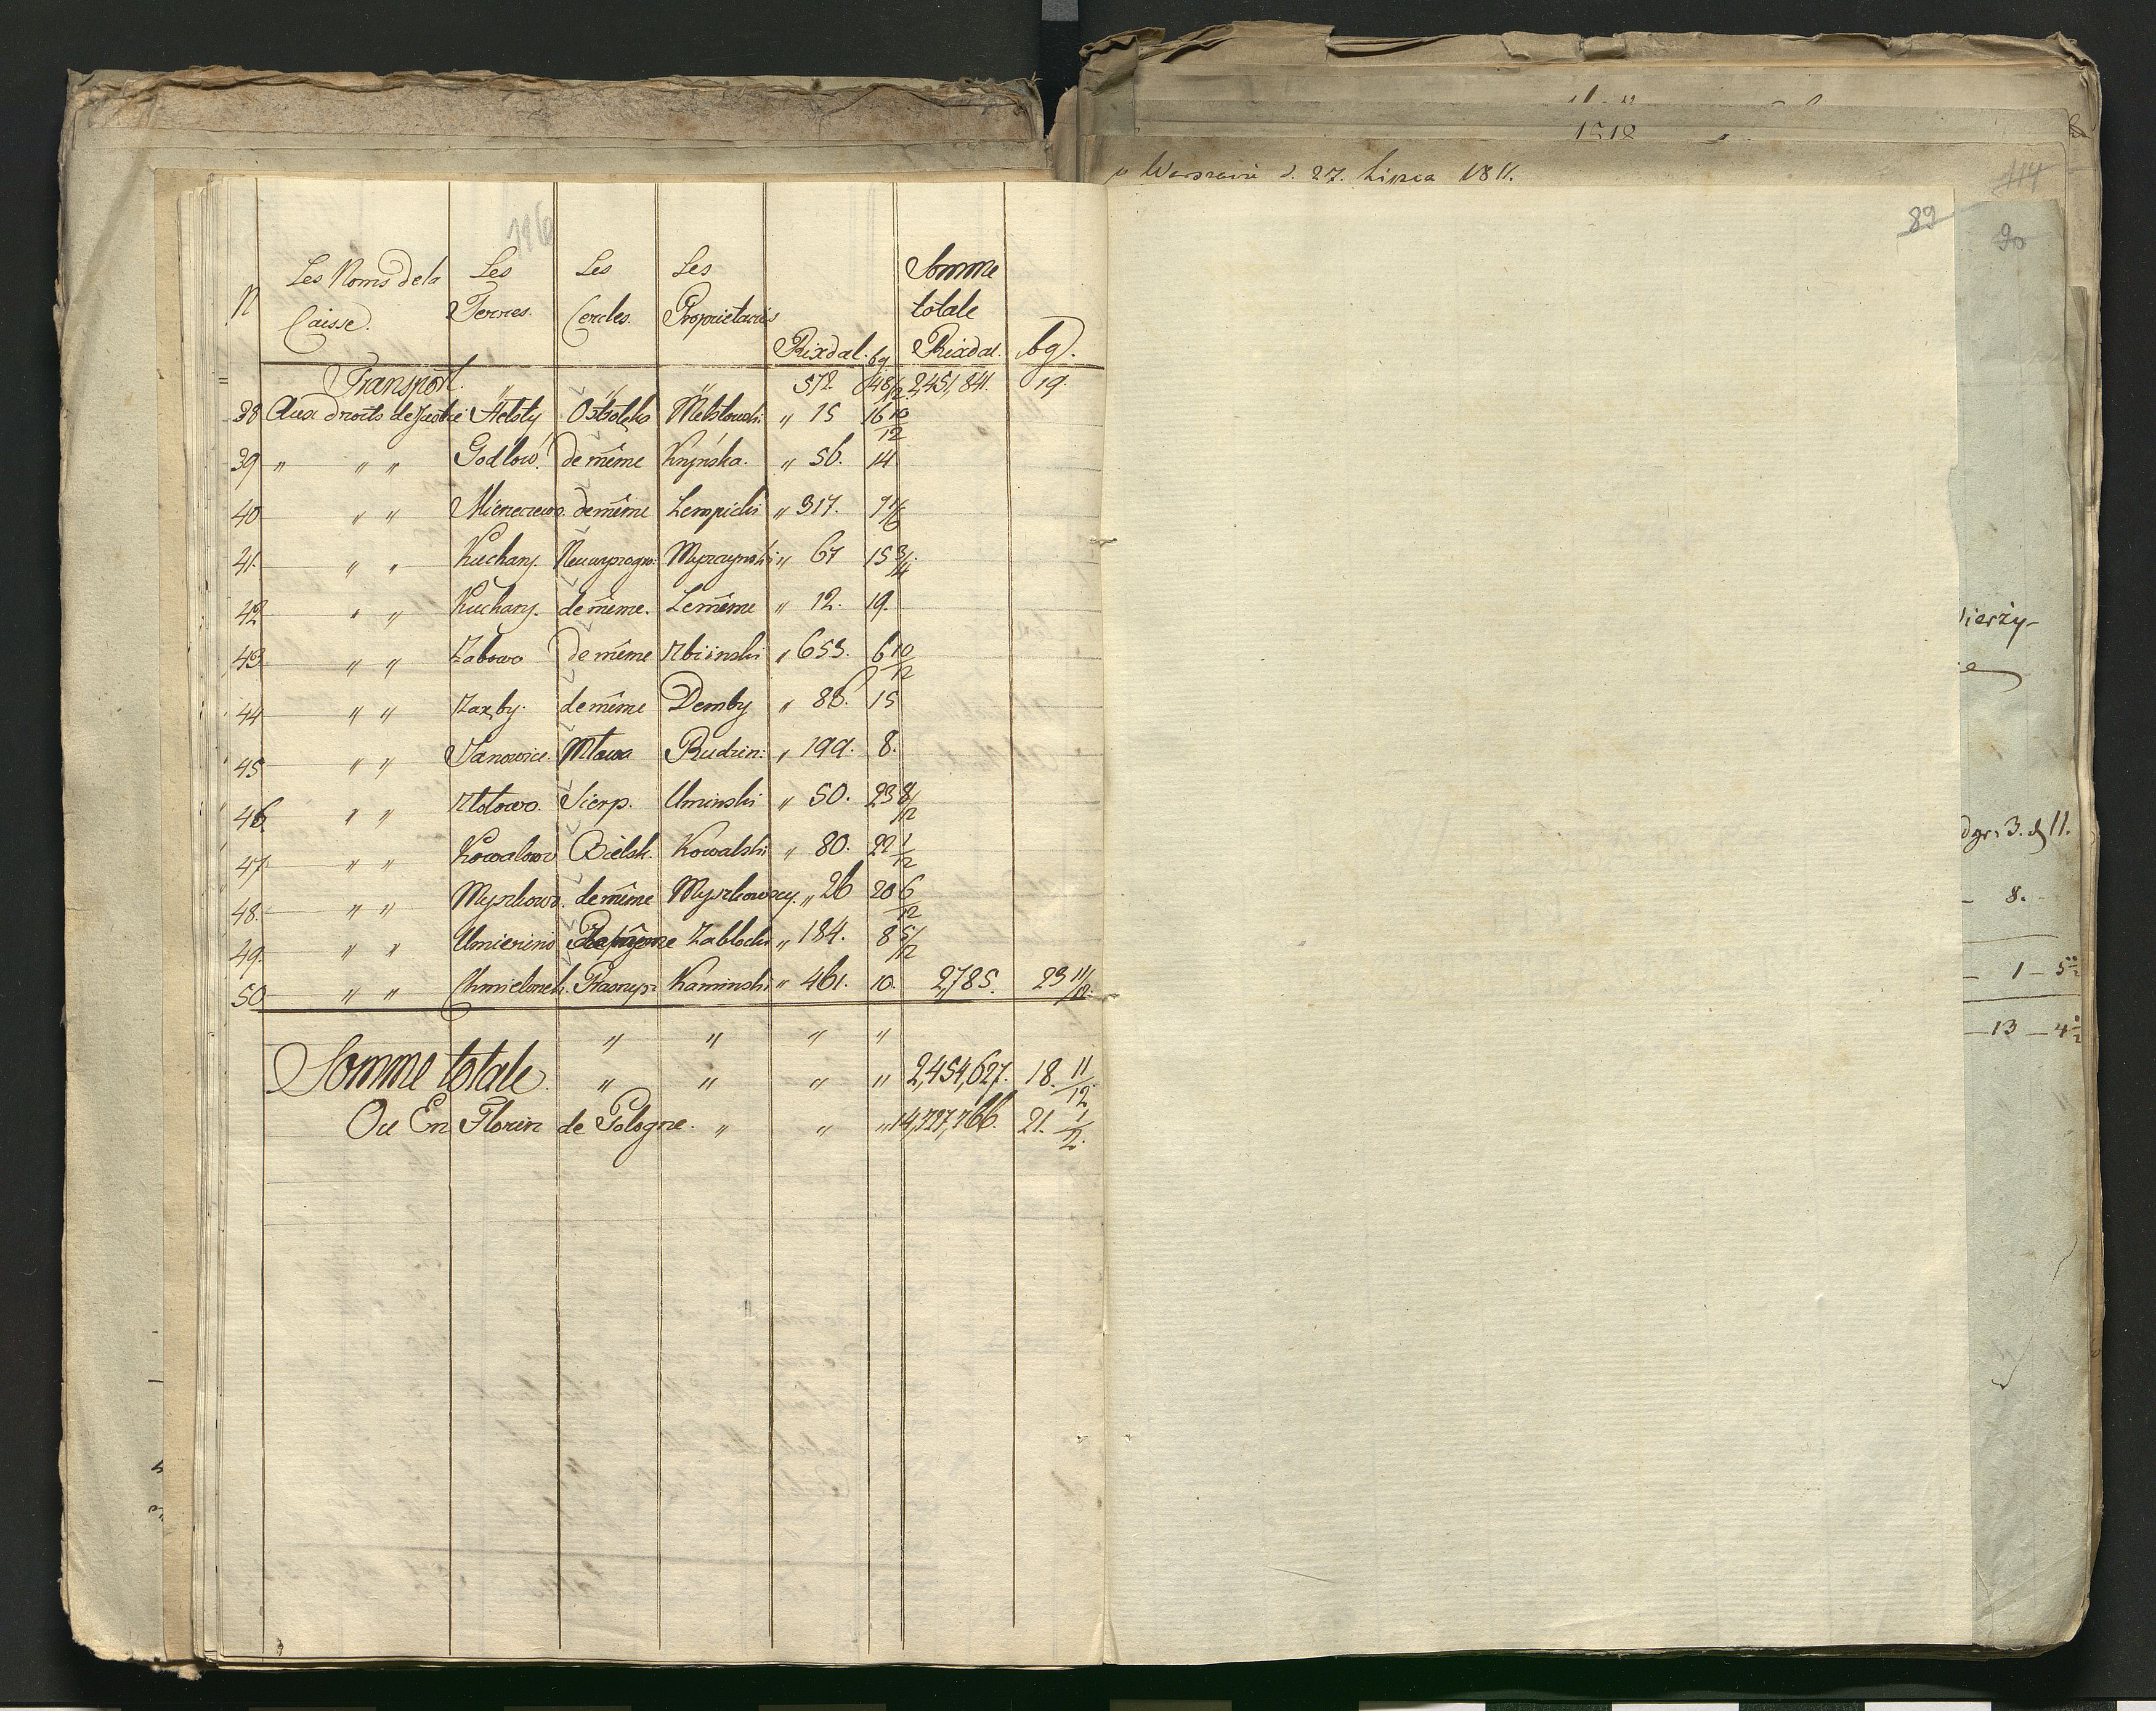 196
N Les Noms de la Caisse. Les Terres. Les Cercles. Les Proprietaires Rixdal. bg Somme totale Rixdal. bg.
Transport. " " " 572. 2,451,841. 19.
38 Aux droits de Justice " 15 16 10/12
39 " " " Godlow. de même Knÿnska. " 56. 14
40 " " de même Lempicki " 317.
41. " " Kuchary. " 67 15 3/4
42 " " Kuchary. de même. Le même " 12. 19.
43 " " Zabowo de même Zbiinski " 653. 6 10/12
44 " " de même Demby " 86. 15
45 " " Janowice. Mlawa Rudzin: " 199. 8.
46. " " Zlotowo. Sierp. Uminski " 50. 23 8/12
47 " " Kowalowo Bielsk. Kowalski " 80. 22 1/12
48. " " Myszkowo. de même Myszkowscy. " 26 20 6/12
49. " " Umienino Zablocki " 184. 8 5/12
50 " " Chmielonek. Prasnys: Kaminski " 461. 10. 2,785. 23 11/12.
" " " "
Somme totale. " " " " 2,454,627. 18. 11/12.
Ou En Florin de Pologne. " " " 14,727,766. 21. 1/2.
1518
w Warszawie d. 27. Lipca 1811.
114
89
90
ierży-
dgr: 3. d 11.
8.
1 - 5
13 - 4